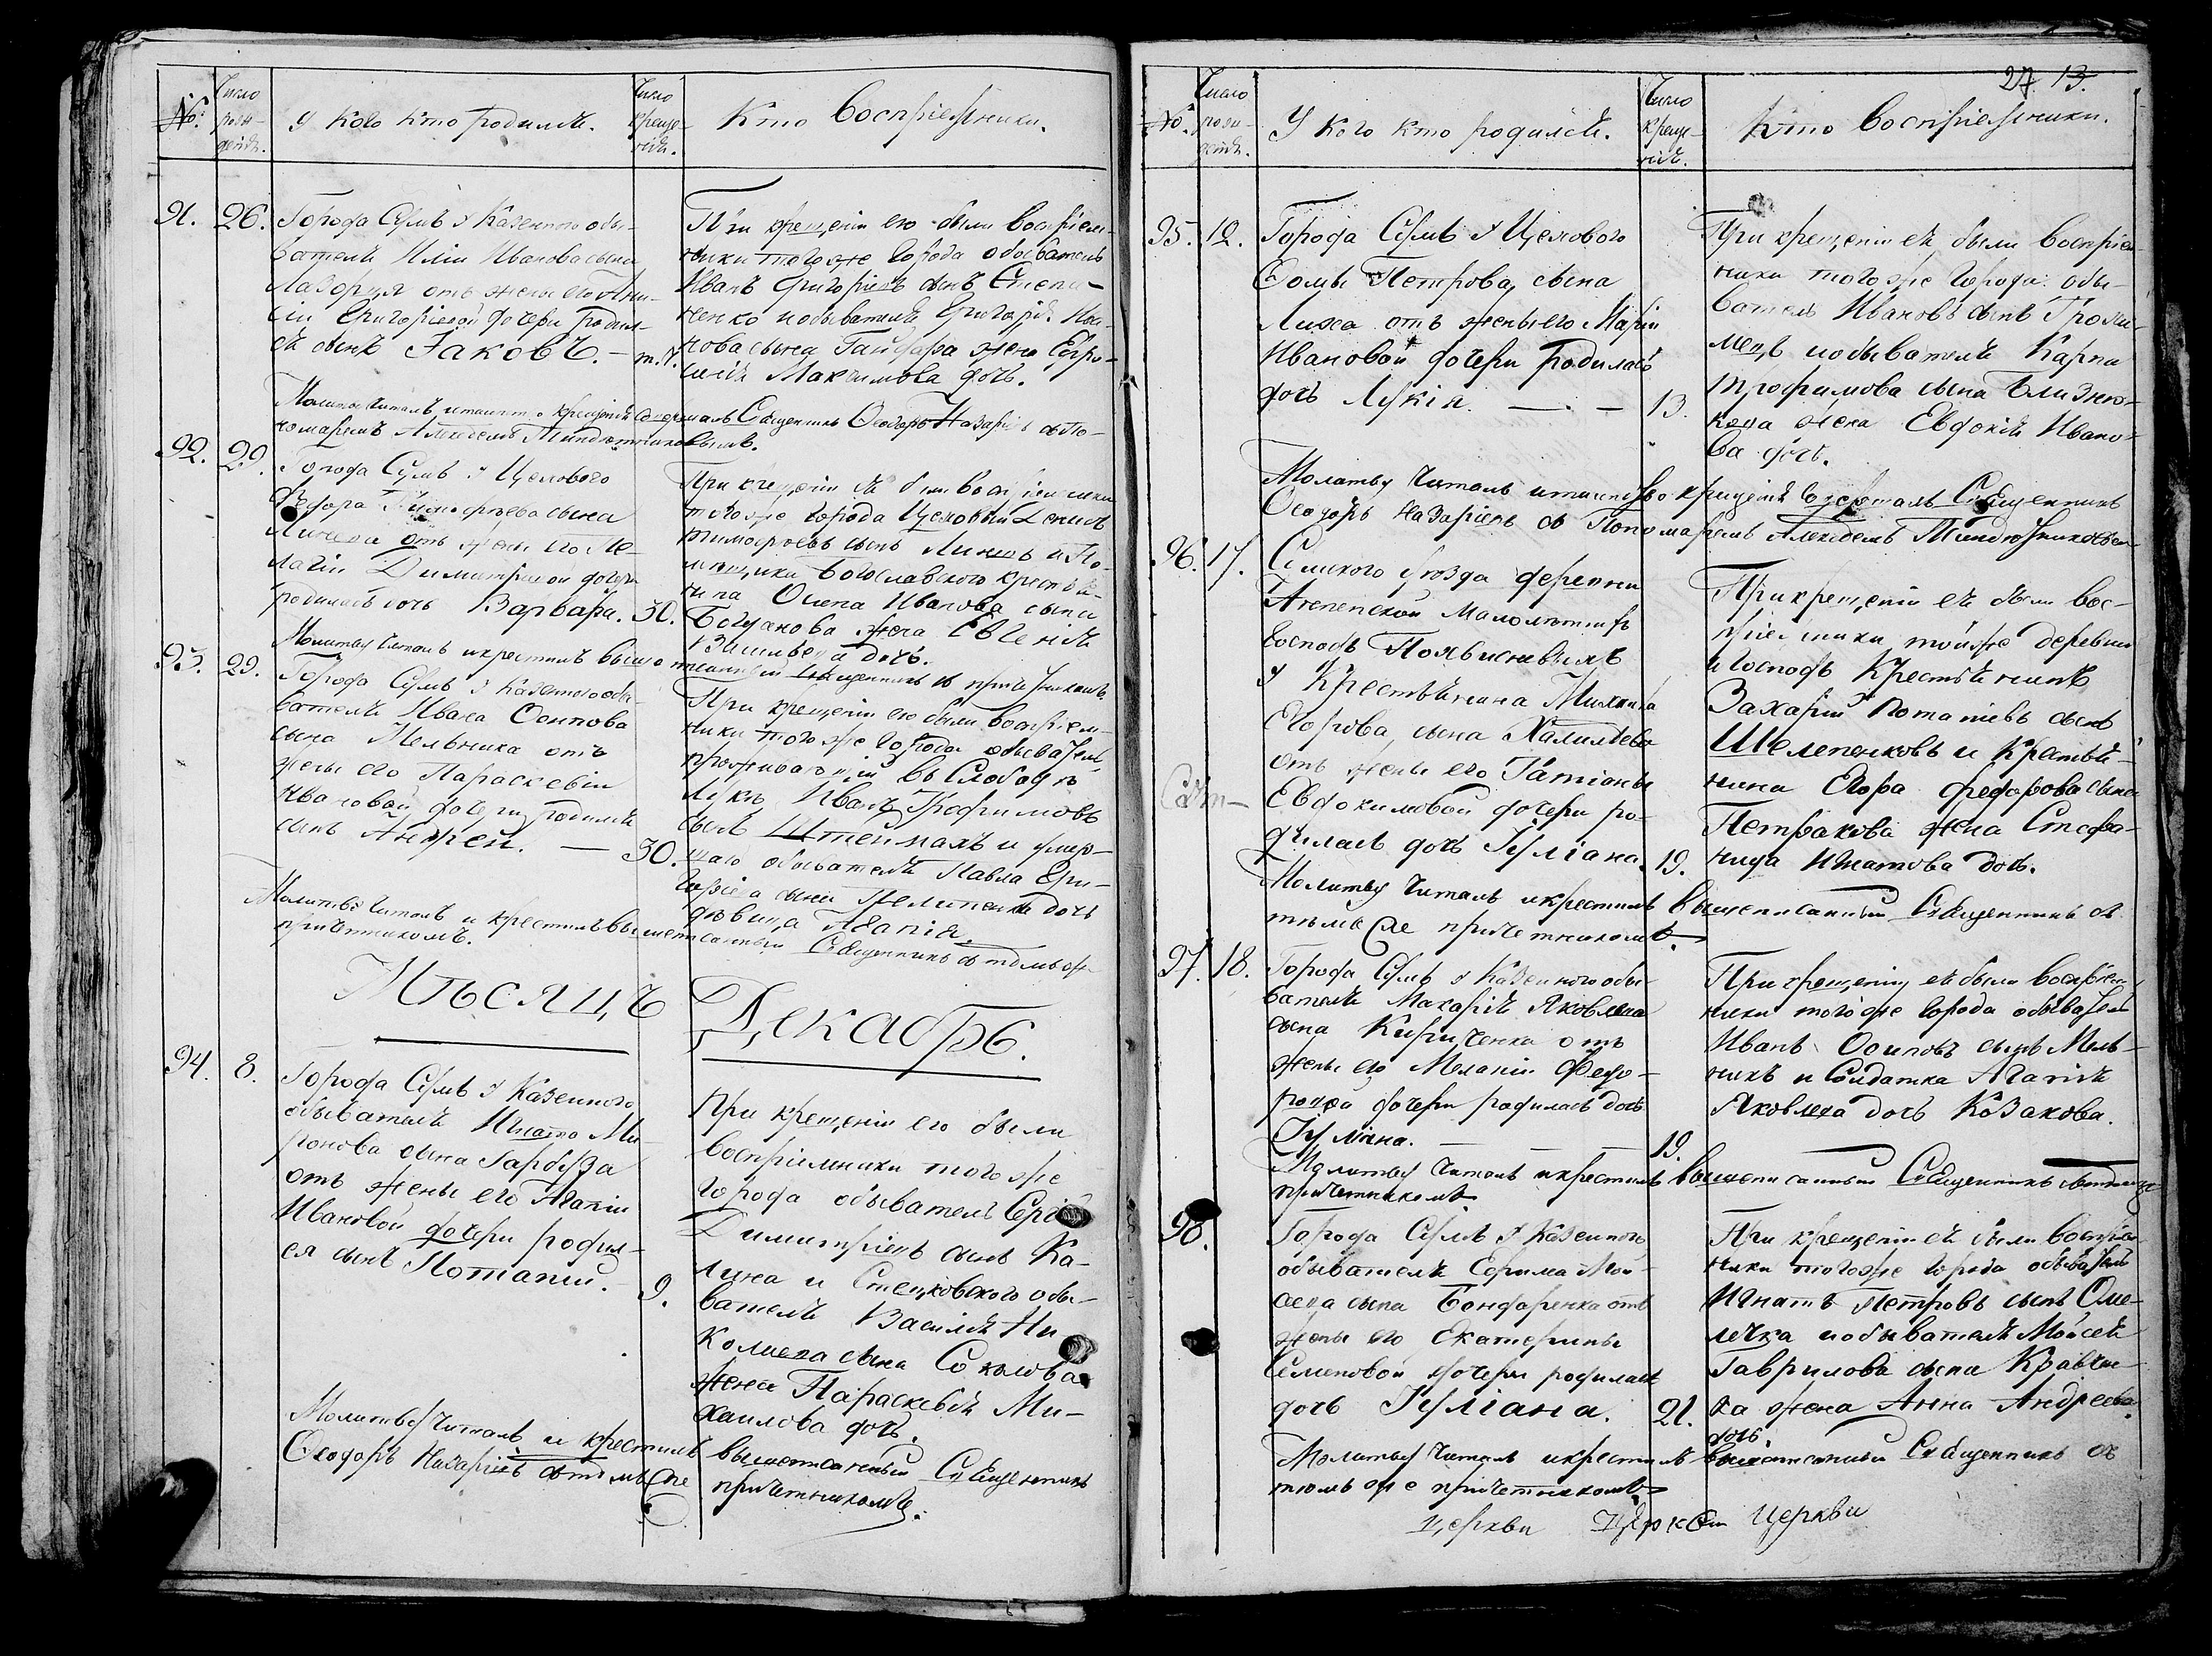 №.
Число рожденія.
У кого кто родился.
Число крещенія.
Кто Воспріемники.
91.
26.
Города Сумъ у Казенного обы-
вателя Иліи Иванова сына
Лазоря отъ жены его
Григоріевой дочери родил-
ся сынъ Іаковъ. —
При крещеніи его были Воспріем-
ники того же города обыватель
Иванъ Григоріевъ сынъ Степа-
ненко и обывателя Григорія
сына жена
Максимова дочь.
Молитву читалъ и таинство крещенія совершалъ Священникъ Ѳеодоръ Назаріевъ съ По-
номаремъ Алексѣемъ
92.
29.
Города Сумъ у Цехового
Ѳедора Тимофѣева сына
отъ жены его Ме-
лагіи Димитріевой дочери
родилась дочь Варвара.
30.
При крещеніи ея были Воспріемники
того же города Цеховый Денисъ
Тимофѣевъ сынъ и По-
мѣщика Богославского крестья-
нина Осипа Иванова сына
Богданова жена Евгенія
Васильева дочь.
Молитву читалъ и крестилъ вышеписанный Священникъ съ причетникомъ.
93.
29.
Города Сумъ у Казенного обы-
вателя Ивана Осипова
сына Мельника отъ
жены его Параскевіи
Ивановой дочери родился
сынъ Андрей. —
30.
При крещеніи его были Воспріем-
ники того же города обыватель
проживающій въ Слободѣ
Лукѣ Иванъ Трофимовъ
сынъ и умер-
шаго обывателя Павла Гри-
горіева сына Пелипенка дочь
дѣвица Агапія.
Молитву читалъ и крестилъ вышеписанный Священникъ съ тѣмъ же
причетникомъ.
Мѣсяцъ Декабрь.
94.
8.
Города Сумъ у Казенного
обывателя Игната Ми-
ронова сына Гарбуза
отъ жены его Агапіи
Ивановой дочери родил-
ся сынъ Потапій.
9.
При крещеніи его были
Воспріемники того же
города обыватель Сергій
Димитріевъ сынъ Ка-
лина и Стецковского обы-
вателя Василія Ни-
колаева сына Соколова
жена Параскевія Ми-
хайлова дочь.
Молитву читалъ и крестилъ вышеписанный Священникъ
Ѳеодоръ Назаріевъ съ тѣмъ же причетникомъ.
27 13.
№.
Число рожденія.
У кого кто родился.
Число крещенія.
Кто Воспріемники.
95.
12.
Города Сумъ у Цехового
Ѳомы Петрова сына
Лиха отъ жены его Маріи
Ивановой дочери родилась
дочь Лукія. — —
13.
При крещеніи ея были Воспріем-
ники того же города обы-
ватель Ивановъ сынъ
и обывателя Карпа
Трофимова сына Близню-
кова жена Евдокія Ивано-
ва дочь.
Молитву читалъ и таинство крещенія совершалъ Священникъ
Ѳеодоръ Назаріевъ съ Пономаремъ Алексѣемъ
96.
17.
Сумского уѣзда деревни
Малолѣтнихъ
Господъ
У Крестьянина Михаила
Егорова сына
отъ жены его Татіаны
Евдокимовой дочери ро-
дилась дочь Іуліана.
19.
При крещеніи ея были Вос-
пріемники той же деревни
и Господъ Крестьянинъ
Захарій Потапіевъ сынъ
Шелепенковъ и Крестья-
нина Егора Федорова сына
Петракова жена Стефа-
нида Игнатова дочь.
Молитву читалъ и крестилъ вышеписанный Священникъ съ
тѣмъ же причетникомъ.
97.
18.
Города Сумъ у Казенного обы-
вателя Макарія Яковлева
сына Кириченка отъ
жены его Меланіи Федо-
ровой дочери родилась дочь
Іуліана. — —
19.
При крещеніи ея были Воспріем-
ники того же города обыватель
Иванъ Осиповъ сынъ Мель-
никъ и Солдатка Агапія
Яковлева дочь Козакова.
Молитву читалъ и крестилъ вышеписанный Священникъ съ тѣмъ же
причетникомъ
98.
Города Сумъ у Казенного
обывателя Ефима Мой-
сеева сына Бондаренка отъ
жены его Екатерины
Семеновой дочери родилась
дочь Іуліана.
21.
При крещеніи ея были Воспріем-
ники того же города обыватель
Игнатъ Петровъ сынъ Оме-
лечка и обывателя Мойсея
Гаврилова сына Кравчен-
ка жена Анна Андреева
дочь.
Молитву читалъ и крестилъ вышеписанный Священникъ съ
тѣмъ же причетникомъ
Церкви Церкви Церкви